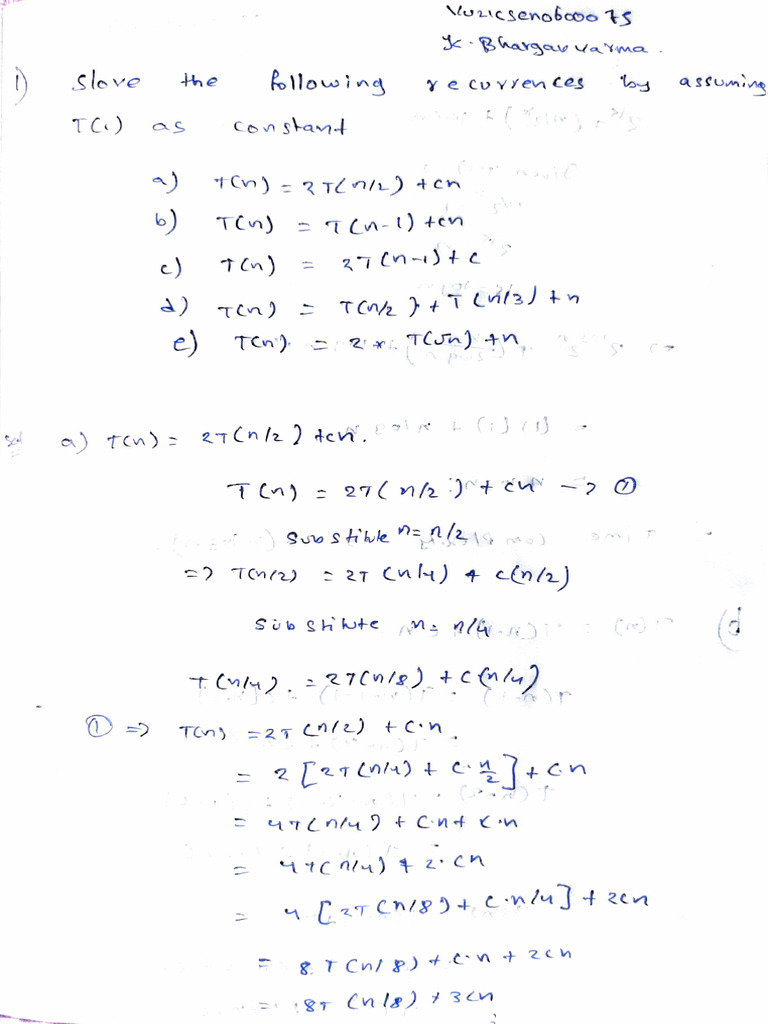 K. Bhargav varma.
1) Slove the following recurrences by assuming
T(1) as constant
a) T(n) = 2T(n/2) + cn
b) T(n) = T(n-1) + cn
c) T(n) = 2T(n-1) + c
d) T(n) = T(n/2) + T(n/3) + n
e) T(n) = 2 * T(√n) + n
Sol a) T(n) = 2T(n/2) + cn.
T(n) = 2T(n/2) + cn -> ①
Substitute n = n/2
=> T(n/2) = 2T(n/4) + c(n/2)
Substitute n = n/4
T(n/4) = 2T(n/8) + c(n/4)
① => T(n) = 2T(n/2) + c.n.
= 2[2T(n/4) + c.n/2] + c.n
= 4T(n/4) + c.n + c.n
= 4T(n/4) + 2.cn
= 4[2T(n/8) + c.n/4] + 2cn
= 8.T(n/8) + c.n + 2cn
= 8T(n/8) + 3cn